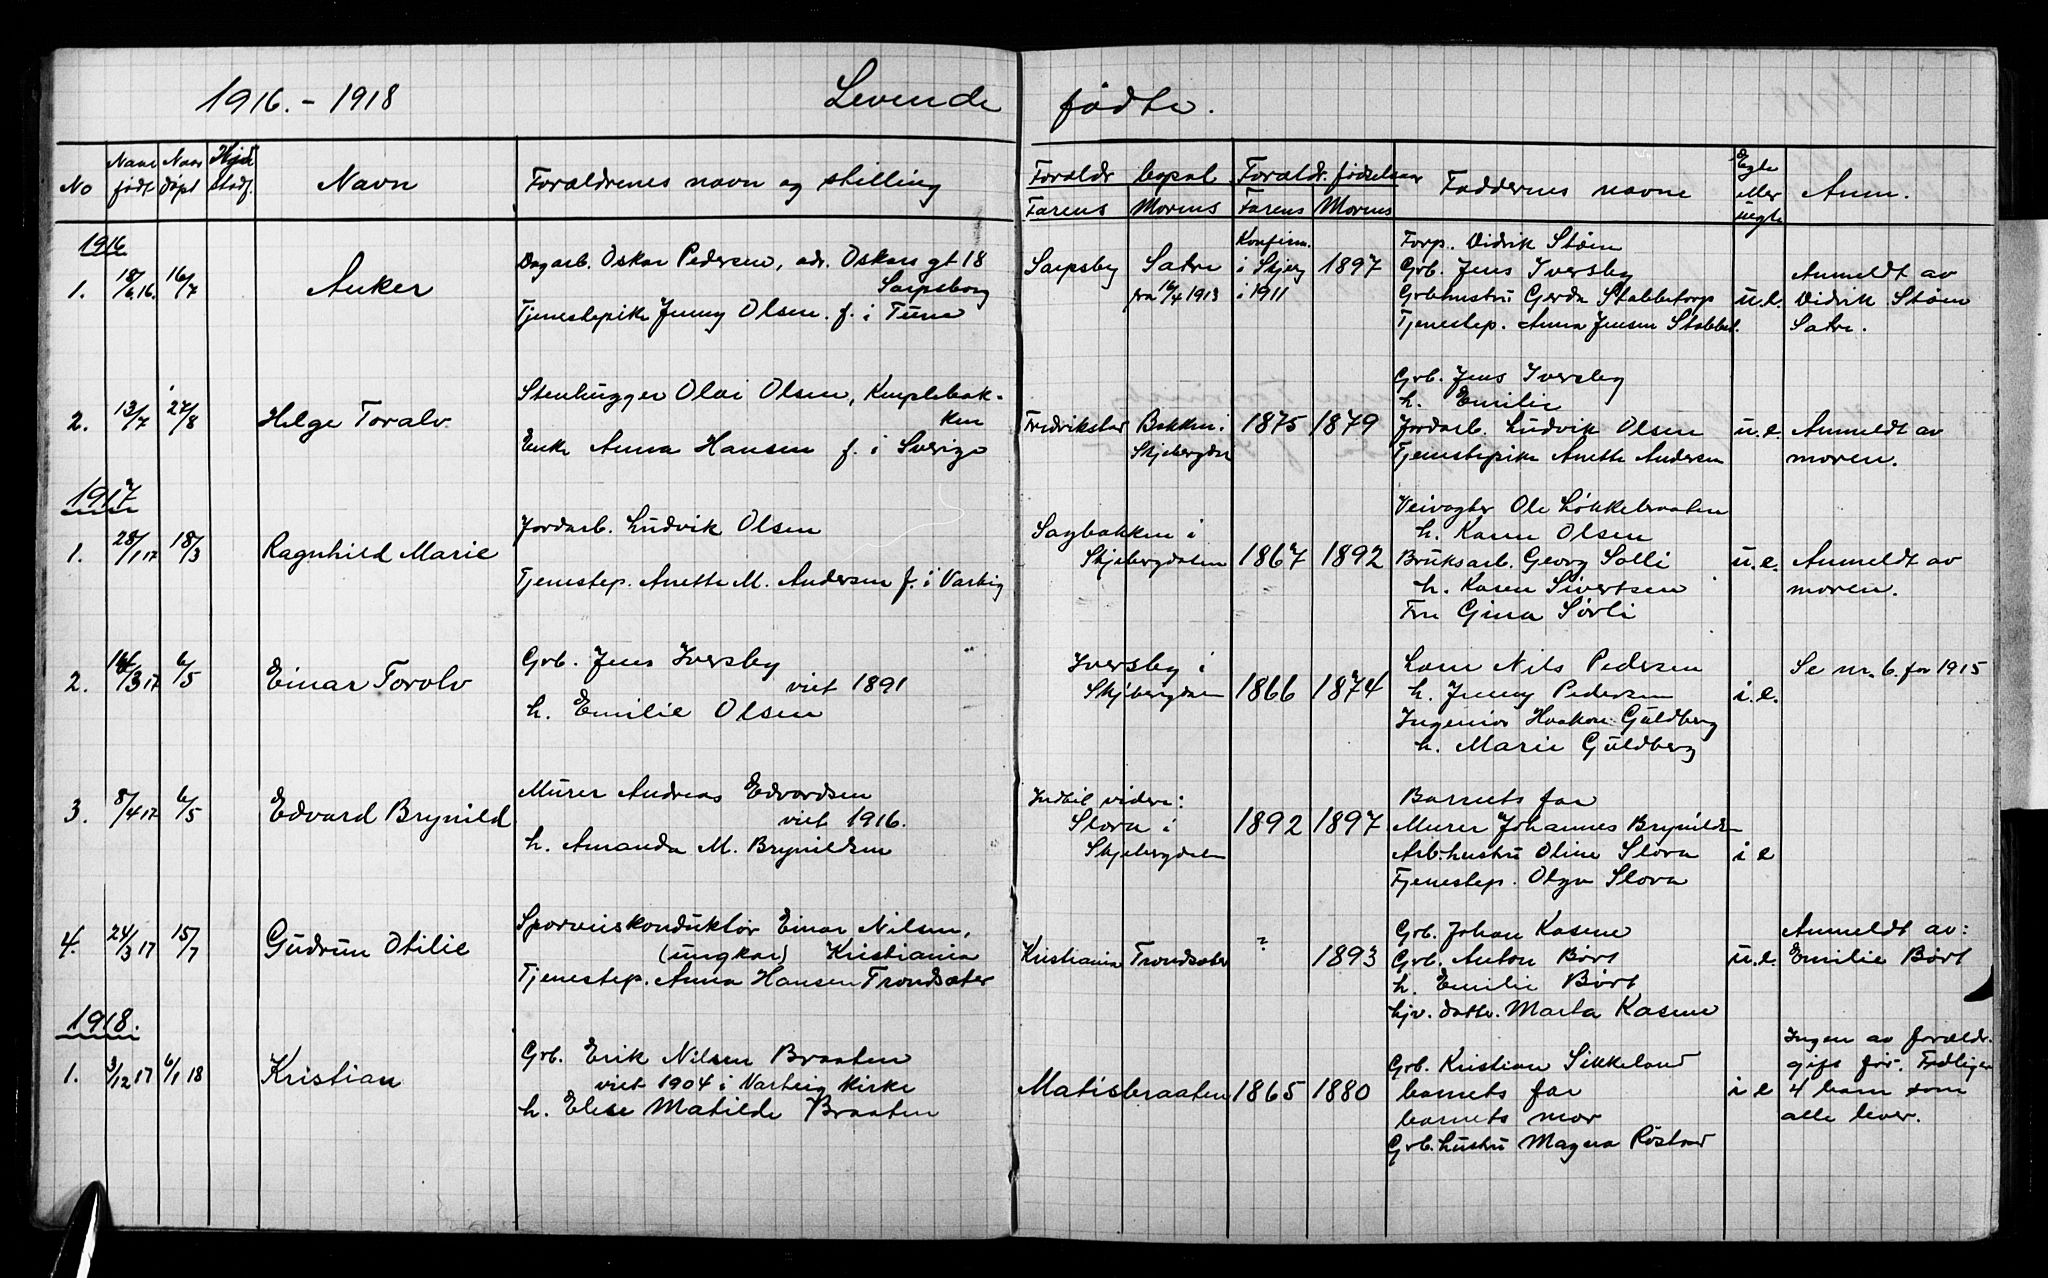 1916.-1918 Levende fødte.
No Naar født Naar døpt Hjd. Navn Forældrenes navn og stilling Forældr. bopæl Forældr. fødselsaar Faddernes navne Ægte eller uegte Anm.
Farens Morens Farens Morens
1916
1. 18/6 16. 16/7 Anker
Dagarb. Oskar Pedersen, adr. Oskars gt 18
Sarpsborg
Tjenestepike Jenny Olsen. f. i Tune
Sarpsbg Satre
fra 16/4 1913
Konfirm.
i Skjeg
i 1911
1897
Forp. Didrik Støen
Grb. Jens Iversby
Grbhustru Gerda Stabbetorp
Tjenestep. Anna Jensen Stabbet.
u.e.
Anmeldt av
Didrik Støen
Satre.
2. 13/7 27/8 Helge Toralv
Stenhugger Olai Olsen, Kniplebak-
ken
Enke Anna Hansen f. i Sverige
Fredrikstad Bakken i
Skjebergdal
1875 1879
Grb. Jens Iversby
h. Emilie
Jordarb. Ludvik Olsen
Tjenestepike Anette Andersen
u.e.
Anmeldt av
moren.
1917
1. 28/1 17 18/3 Ragnhild Marie
Jordarb. Ludvik Olsen
Tjenestep. Anette M. Andersen f. i Varteig
Sagbakken i
Skjebergdalen
1867 1892
Veivogter Ole Løkkebraaten
h. Karen Olsen
Bruksarb. Georg Solli
h. Karen Sivertsen
Fru Gina Sørli
u.e.
Anmeldt av
moren.
2. /3 17 6/5 Einar Torolv
Grb. Jens Iversby
viet 1891
h. Emilie Olsen
Iversby i
Skjebergdalen
1866 1874
Løsm Nils Pedersen
h. Jenny Pedersen
Ingeniør Haakon Guldberg
h. Marie Guldberg
i.e.
Se nr. 6. for 1915
3. 8/4 17 6/5 Edvard Brynild
Murer Andreas Edvardsen
viet 1916.
h. Amanda M. Brynildsen
Indtil videre:
Slora i
Skjebergdalen
1892 1897
Barnets far
Murer Johannes Brynildsen
Arb.hustru Oline Slora
Tjenestep. Olga Slora
i e
4. 24/3 17 15/7 Gudrun Otilie
Sporveiskonduktør Einar Nilsen,
(ungkar) Kristiania
Tjenestep. Anna Hansen Trondsæter
Kristiania Trondsæter ? 1893
Grb. Johan Kasene
Grb. Anton Børt
h. Emilie Børt
hjv. datte. Marta Kasene
u.e.
Anmeldt av:
Emilie Børt
1918.
1. 3/12 17 6/1 18 Kristian
Grb. Erik Nilsen Braaten
viet 1904 i Varteig kirke
h. Elise Matilde Braaten
Matisbraaten 1865 1880
Grb. Kristian Sikkeland
barnets far
barnets mor
Grb. hustru Magna Röstad
i e
Ingen av forældr.
gift før. Tidligere
4 barn som
alle lever.